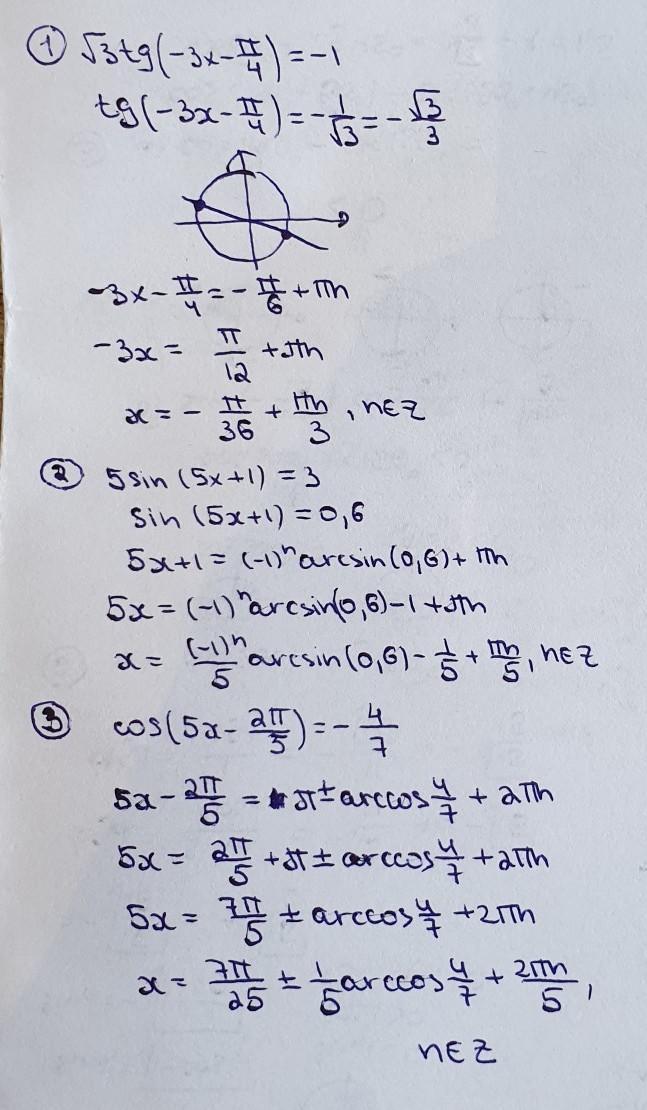 ① √3tg(-3x-π/4)=-1
tg(-3x-π/4)=-1/√3=-√3/3
-3x-π/4=-π/6+πn
-3x= π/12+πn
x=-π/36+πn/3, n∈Z
② 5sin(5x+1)=3
sin(5x+1)=0,6
5x+1=(-1)ⁿarcsin(0,6)+πn
5x=(-1)ⁿarcsin(0,6)-1+πn
x=(-1)ⁿ/5 arcsin(0,6)-1/5+πn/5, n∈Z
③ cos(5x-2π/5)=-4/7
5x-2π/5=π±arccos4/7+2πn
5x=2π/5+π±arccos4/7+2πn
5x=7π/5±arccos4/7+2πn
x=7π/25±1/5arccos4/7+2πn/5,
n∈Z